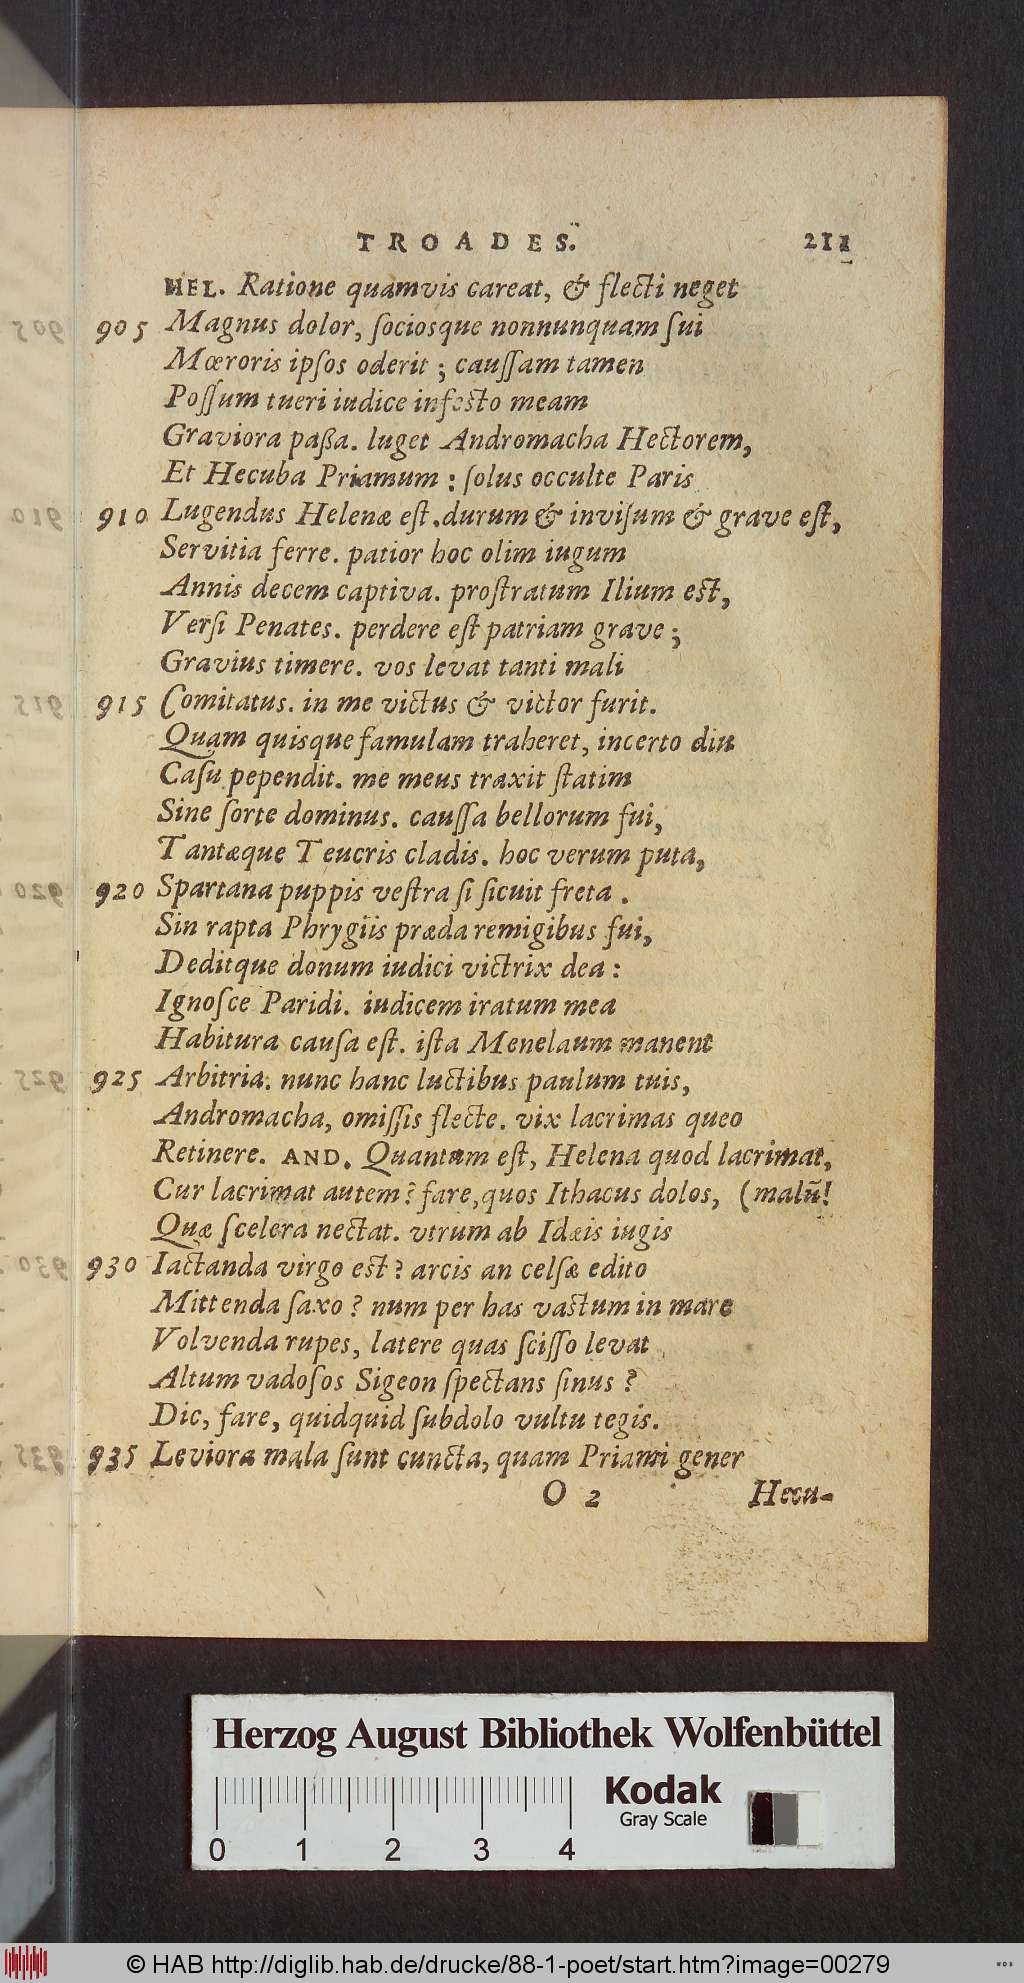 TROADES. 211
HEL. Ratione quamvis careat, & flecti neget
905 Magnus dolor, ſociosque nonnunquam ſui
Mœroris ipſos oderit ; cauſſam tamen
Poſſum tueri iudice infesto meam
Graviora paßa. luget Andromacha Hectorem,
Et Hecuba Priamum : ſolus occulte Paris
910 Lugendus Helenæ eſt. durum & inviſum & grave eſt,
Servitia ferre. patior hoc olim iugum
Annis decem captiva. proſtratum Ilium est,
Verſi Penates. perdere eſt patriam grave ;
Gravius timere. vos levat tanti mali
915 Comitatus. in me victus & victor furit.
Quam quisque famulam traheret, incerto diu
Caſu pependit. me meus traxit ſtatim
Sine ſorte dominus. cauſſa bellorum fui,
Tantæque Teucris cladis. hoc verum puta,
920 Spartana puppis veſtra ſi ſicuit freta .
Sin rapta Phrygiis præda remigibus fui,
Deditque donum iudici victrix dea :
Ignoſce Paridi. iudicem iratum mea
Habitura cauſa eſt. iſta Menelaum manent
925 Arbitria. nunc hanc luctibus paulum tuis,
Andromacha, omiſſis flecte. vix lacrimas queo
Retinere. AND. Quantum eſt, Helena quod lacrimat,
Cur lacrimat autem ? fare, quos Ithacus dolos, (malũ!
Quæ ſcelera nectat. vtrum ab Idæis iugis
930 Iactanda virgo est ? arcis an celſæ edito
Mittenda ſaxo ? num per has vastum in mare
Volvenda rupes, latere quas ſciſſo levat
Altum vadoſos Sigeon ſpectans ſinus ?
Dic, fare, quidquid ſubdolo vultu tegis.
935 Leviora mala ſunt cuncta, quam Priami gener
O 2 Hecu-
Herzog August Bibliothek Wolfenbüttel
Kodak
Gray Scale
0 1 2 3 4
© HAB http://diglib.hab.de/drucke/88-1-poet/start.htm?image=00279